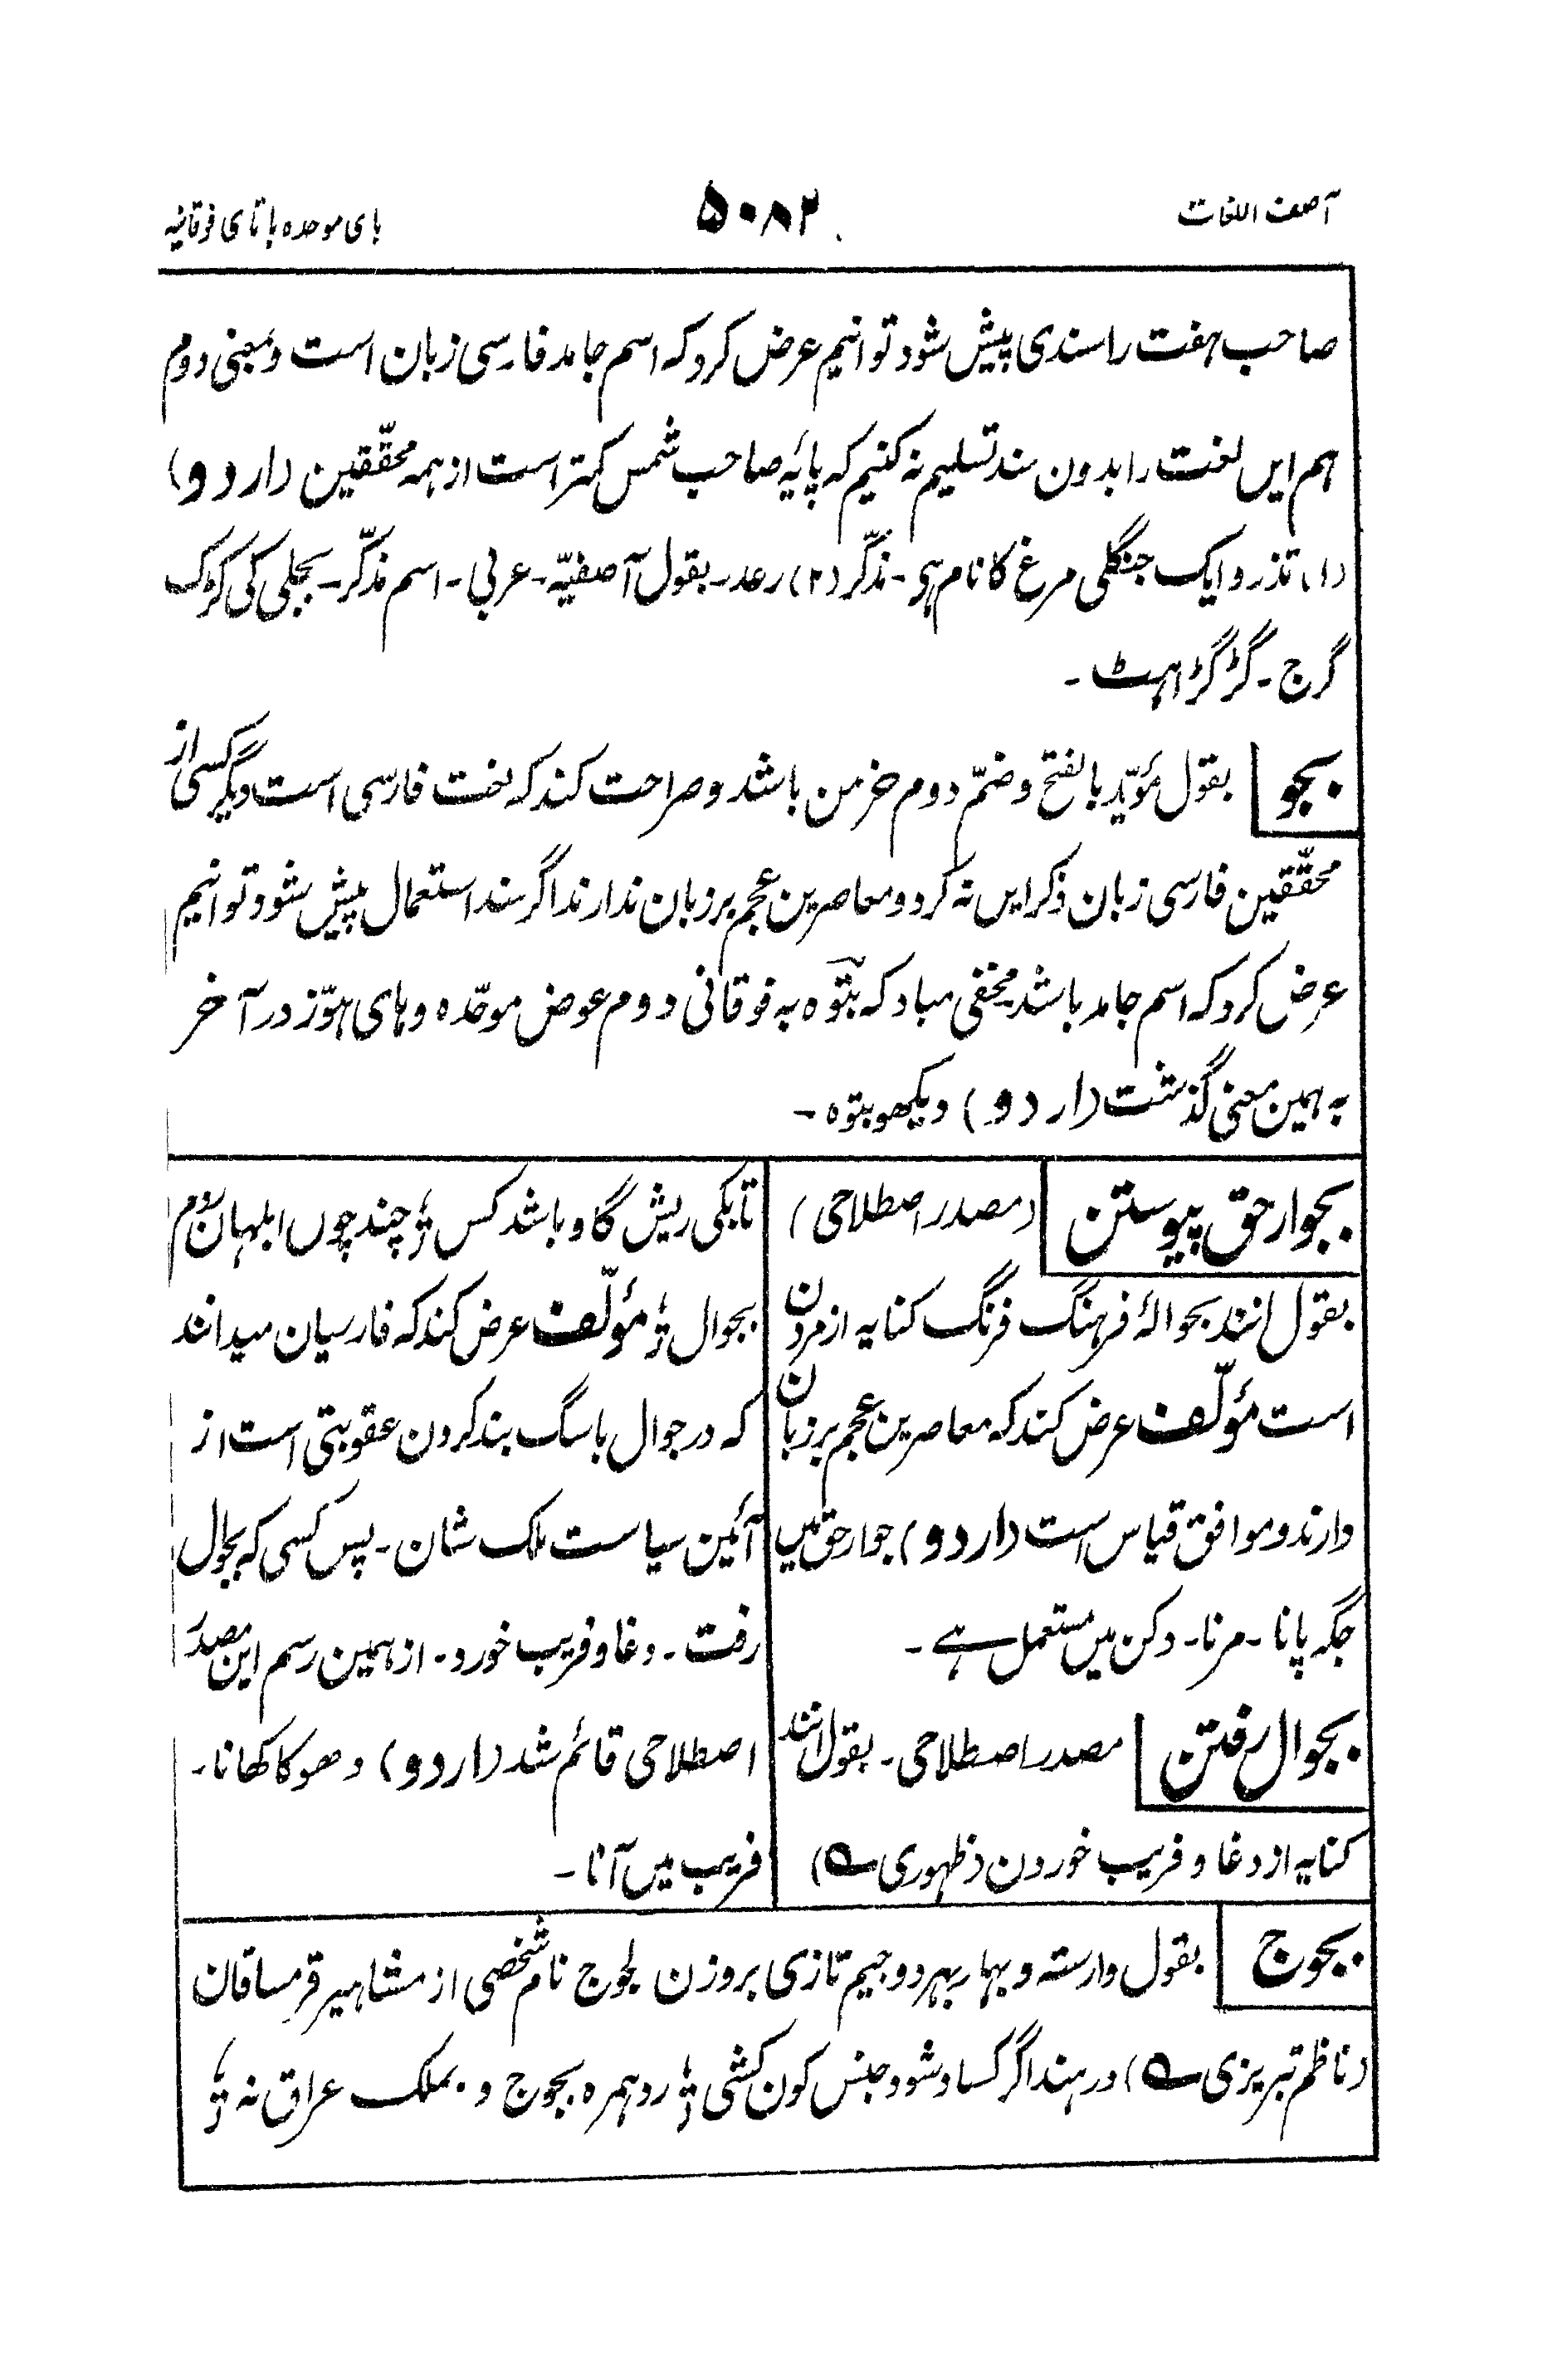 آصف اللغات
۵۰۸۲
بای موحده با تای فوقانیه
صاحب ہفت را سندی پیش شود توانیم عرض کرد کہ اسم جامد فارسی زبان است و بمعنی دوم
ہم ایں لغت را بدون سند تسلیم نہ کنیم کہ پایۂ صاحب شمس کمتر است از ہمہ محقّقین (اردو)
(۱) تذرو ایک جنگلی مرغ کا نام ہی۔ مذکّر (۲) رعد۔ بقول آصفیّہ۔ عربی۔ اسم مذکّر۔ بجلی کی کڑک
گرج۔ گڑگڑاہٹ۔
بجو بقول مؤیّد بالفتح وضمّ دوم خرمن باشد و صراحت کند کہ لغت فارسی است دیگر کسی از
محقّقین فارسی زبان ذکر ایں نہ کرد و معاصرین عجم بر زبان ندارند اگر سند استعمال پیش شود توانیم
عرض کرد کہ اسم جامد باشد مخفی مباد کہ بتّوہ بہ فوقانی دوم عوض موحّدہ و ہای ہوّز در آخر
بہ ہمین معنی گذشت (اردو) دیکھو بتوہ۔
بجوار حق پیوستن (مصدر اصطلاحی)
بقول انند بحوالۂ فرہنگ فرنگ کنایہ از مردن
است مؤلّف عرض کند کہ معاصرین عجم بر زبان
دارند و موافق قیاس است (اردو) جوار حق میں
جگہ پانا۔ مرنا۔ دکن میں مستعمل ہے۔
بجوال رفتن مصدر اصطلاحی۔ بقول انند
کنایہ از دغا و فریب خوردن (ظہوری ؎)
تا بکی ریش گاو باشد کس ؛ چند چوں ابلہان روم
بجوال ؛ مؤلّف عرض کند کہ فارسیان میدانند
کہ در جوال با سگ بند کردن عقوبتی است از
آئین سیاست ملک شان۔ پس کسی کہ بجوال
رفت۔ دغا و فریب خورد۔ از ہمین رسم این مصدر
اصطلاحی قائم شد (اردو) دھوکا کھانا۔
فریب میں آنا۔
بجوج بقول وارستہ و بہار بہر دو جیم تازی بروزن لجوج نام شخصی از مشاہیر قرمساقان
(ناظم تبریزی ؎) در ہند اگر کساد شود جنس کون کشی ؛ رو ہمرہ بجوج و بملک عراق نہ ؛